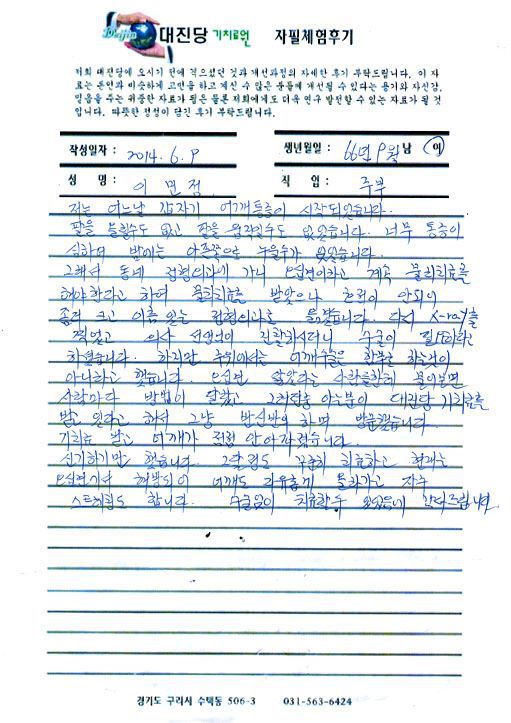 Daejin 대진당 기치료원 자필체험후기
저희 대진당에 오시기 전에 겪으셨던 것과 개선과정의 자세한 후기 부탁드립니다. 이 자
료는 본인과 비슷하게 고민을 하고 계신 수 많은 분들께 개선될 수 있다는 용기와 자신감,
믿음을 주는 귀중한 자료가 됨은 물론 저희에게도 더욱 연구 발전할 수 있는 자료가 될 것
입니다. 따뜻한 정성이 담긴 후기 부탁드립니다.
작성일자 : 2014. 6. 9 생년월일 : 66년 9월 남 여
성 명 : 이 면 정 직 업 : 주부
저는 어느날 갑자기 어깨통증이 시작되었습니다.
팔을 들릴수도 없고 팔을 움직일수도 없었습니다. 너무 통증이
심하며 밤에는 아픈쪽으로 누울수가 없었습니다.
그래서 동네 정형외과에 가니 오십견이라고 계속 물리치료를
해야한다고 하여 물리치료를 받았으나 호전이 안되어
좀더 크고 이름 있는 정형외과로 옮겼습니다. 다시 X-ray를
찍었고 의사 선생님이 진찰하시더니 수술이 필요하다고
하셨습니다. 하지만 주위에서는 어깨수술은 함부로 하는것이
아니라고 했습니다. 오십견 앓았다는 사람들한테 물어보면
사람마다 방법이 달랐고 그러던중 아는분이 대진당 기치료를
받고 있다고 해서 그냥 반신반의 하며 방문했습니다.
기치료 받고 어깨가 점점 나아졌습니다.
신기하기만 했습니다. 그달정도 꾸준히 치료하고 현재는
오십견에서 해방되어 어깨도 자유롭게 돌아가고 자주
스트레칭도 합니다. 수술없이 치료할수 있었음에 감사드립니다.
경기도 구리시 수택동 506-3 031-563-6424